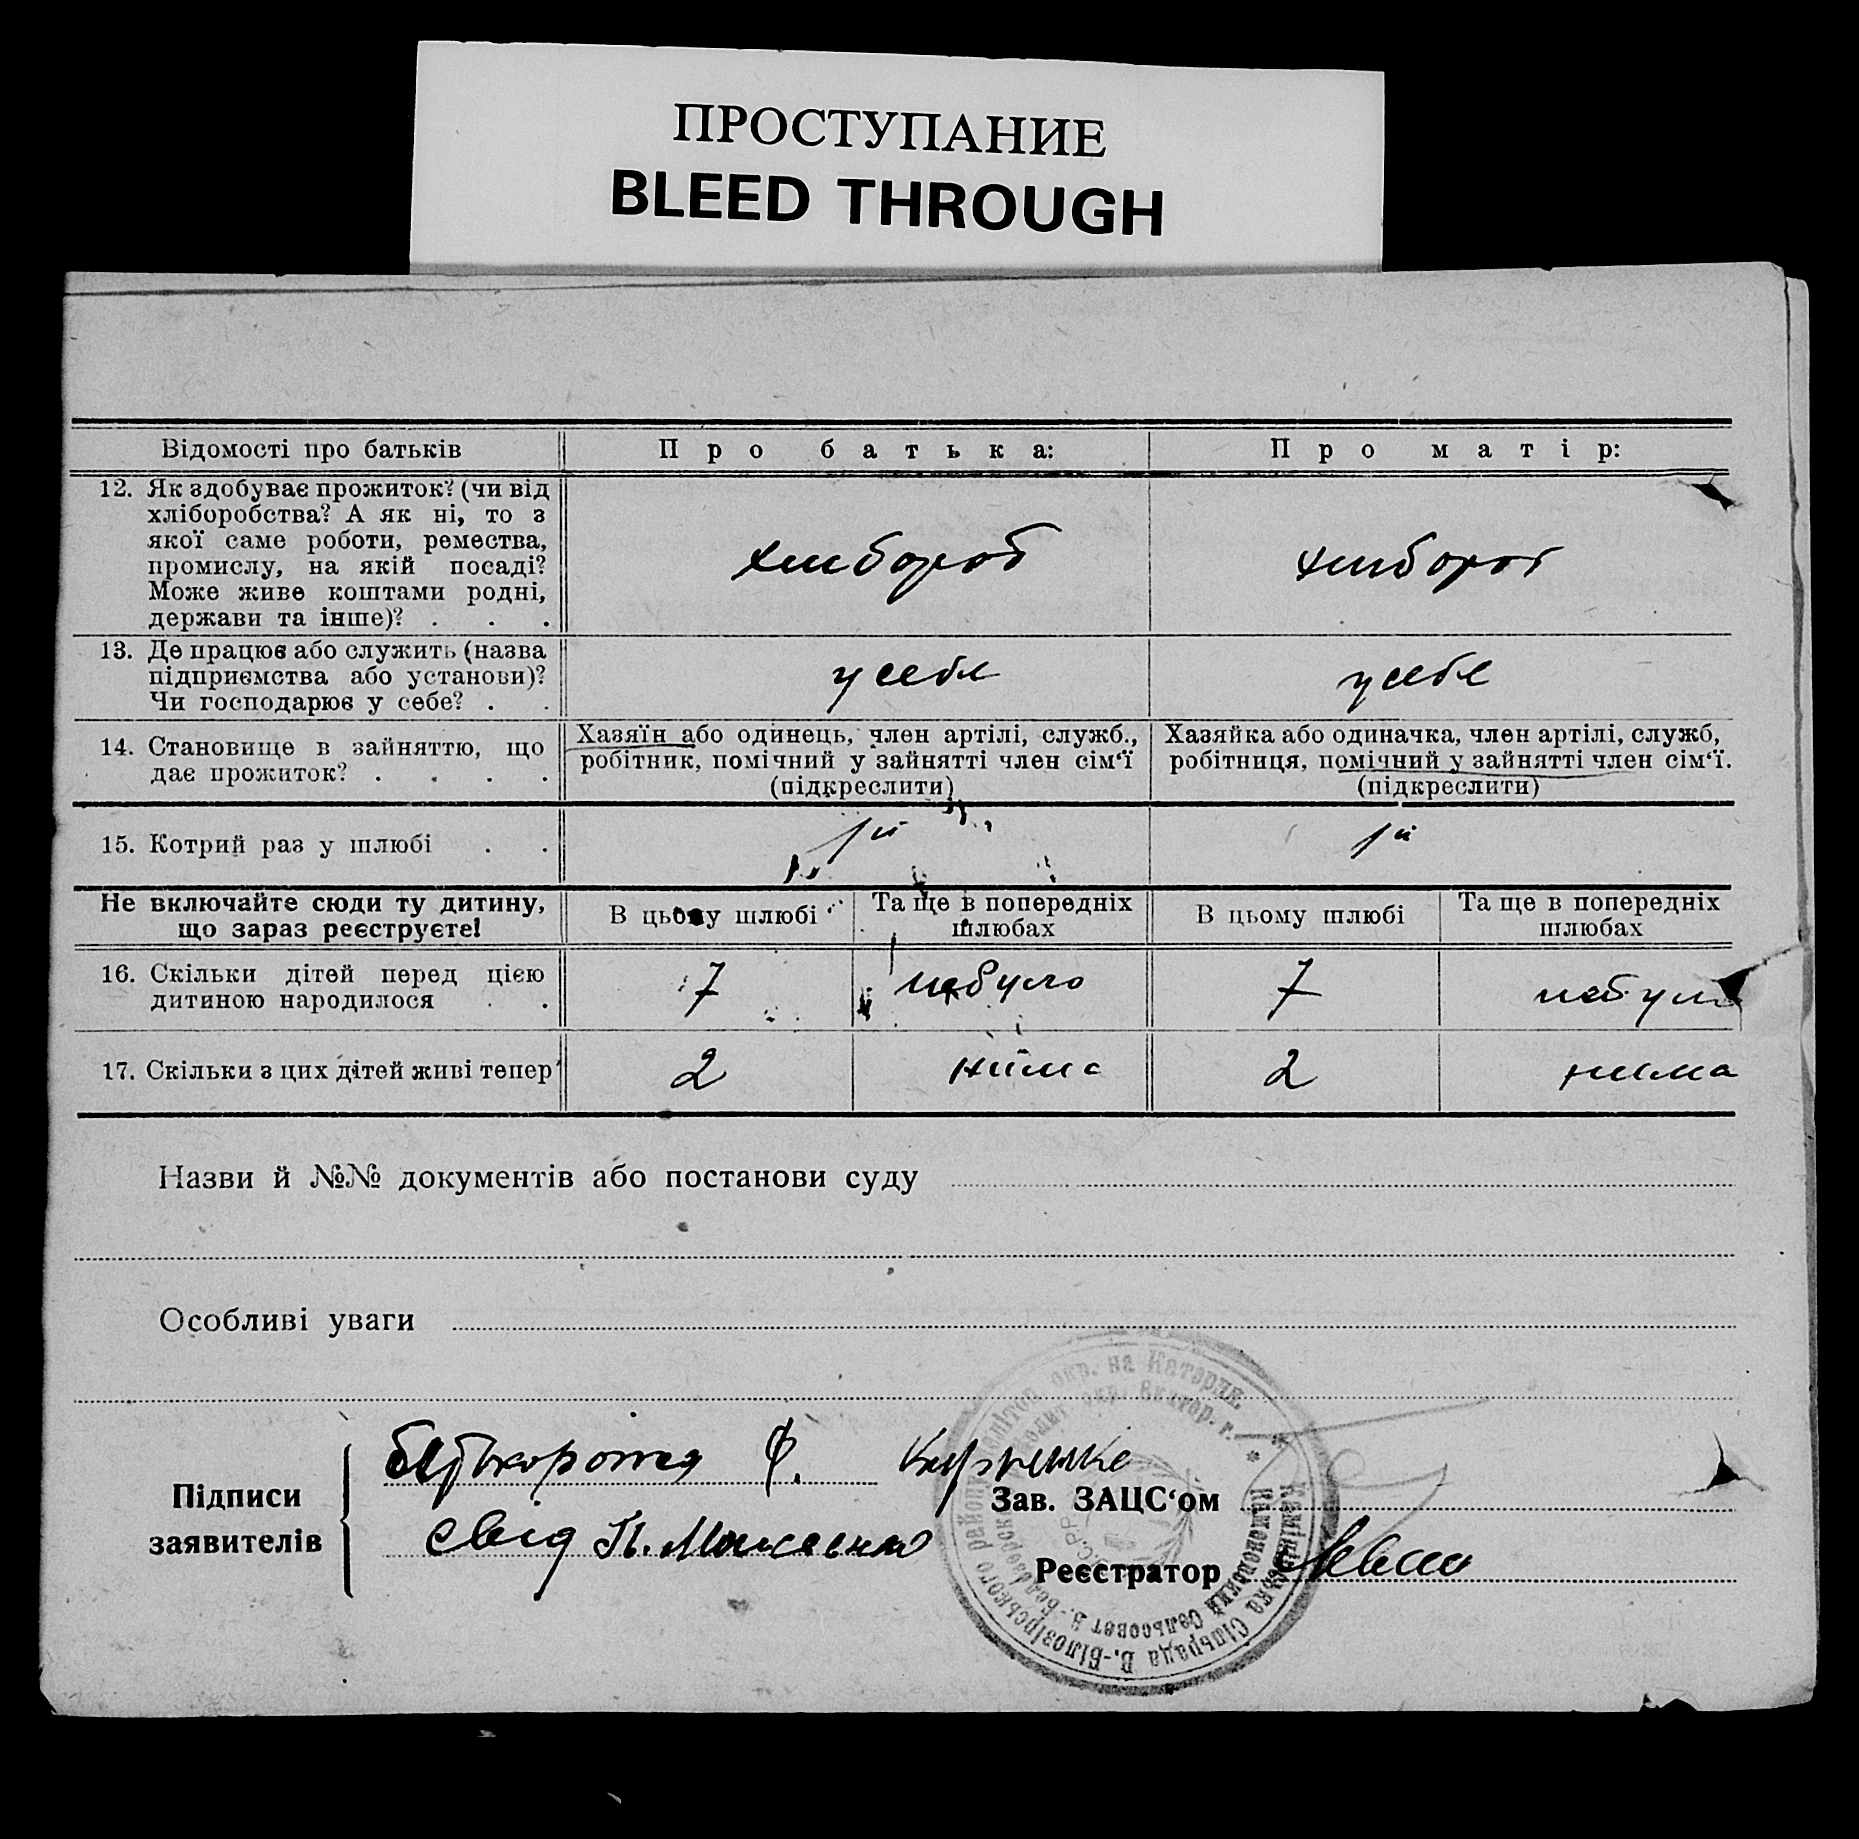 ПРОСТУПАНИЕ
BLEED THROUGH
Відомості про батьків
Про батька:
Про матір:
12. Як здобуває прожиток? (чи від
хліборобства? А як ні, то з
якої саме роботи, ремества,
промислу, на якій посаді?
Може живе коштами родні,
держави та інше)? . . .
хлибороб
хлибороб
13. Де працює або служить (назва
підприємства або установи)?
Чи господарює у себе? . .
у себе
у себе
14. Становище в зайняттю, що
дає прожиток? . . . .
Хазяїн або одинець, член артілі, служб.,
робітник, помічний у зайнятті член сім‘ї
(підкреслити)
Хазяйка або одиначка, член артілі, служб,
робітниця, помічний у зайнятті член сім‘ї.
(підкреслити)
15. Котрий раз у шлюбі . .
1й
1й
Не включайте сюди ту дитину,
що зараз реєструєте!
В цьому шлюбі
Та ще в попередніх
шлюбах
В цьому шлюбі
Та ще в попередніх
шлюбах
16. Скільки дітей перед цією
дитиною народилося . .
7
небуло
7
небуло
17. Скільки з цих дітей живі тепер
2
нима
2
нима
Назви й №№ документів або постанови суду
Особливі уваги
Підписи
заявителів
Ф.
свід
Зав. ЗАЦС‘ом
Реєстратор
Сільрада В.-Білозірського району
Сельсовет В.-Белозерск